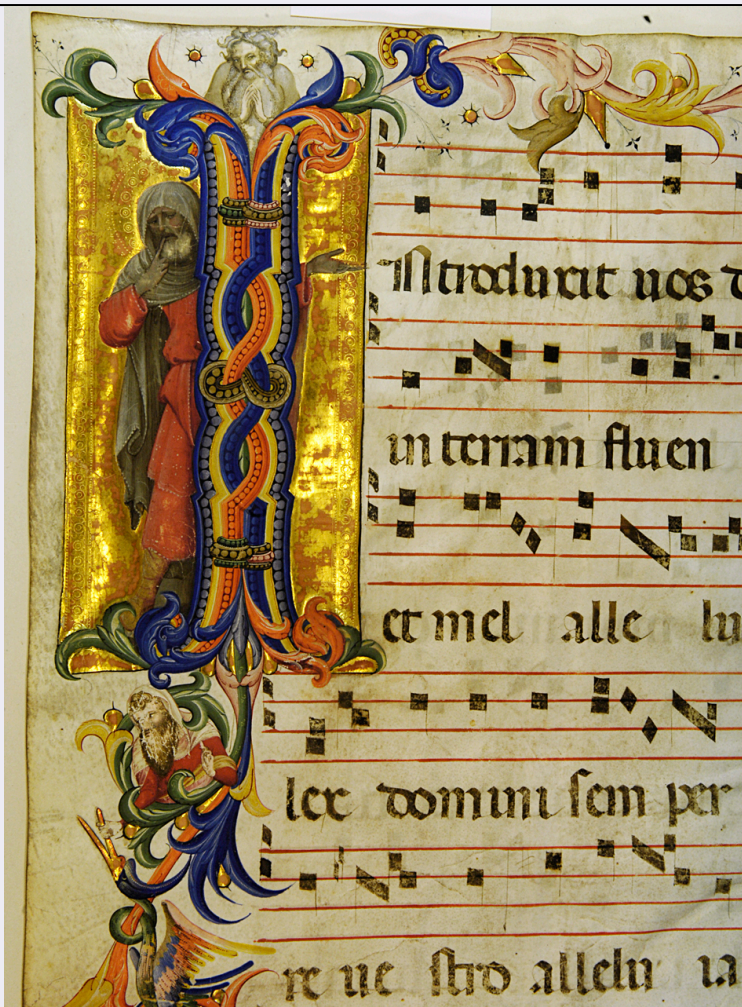 INtroduxit uos d
in terram fluen
et mel alle lu
lex domini sem per
re ue stro allelu ia